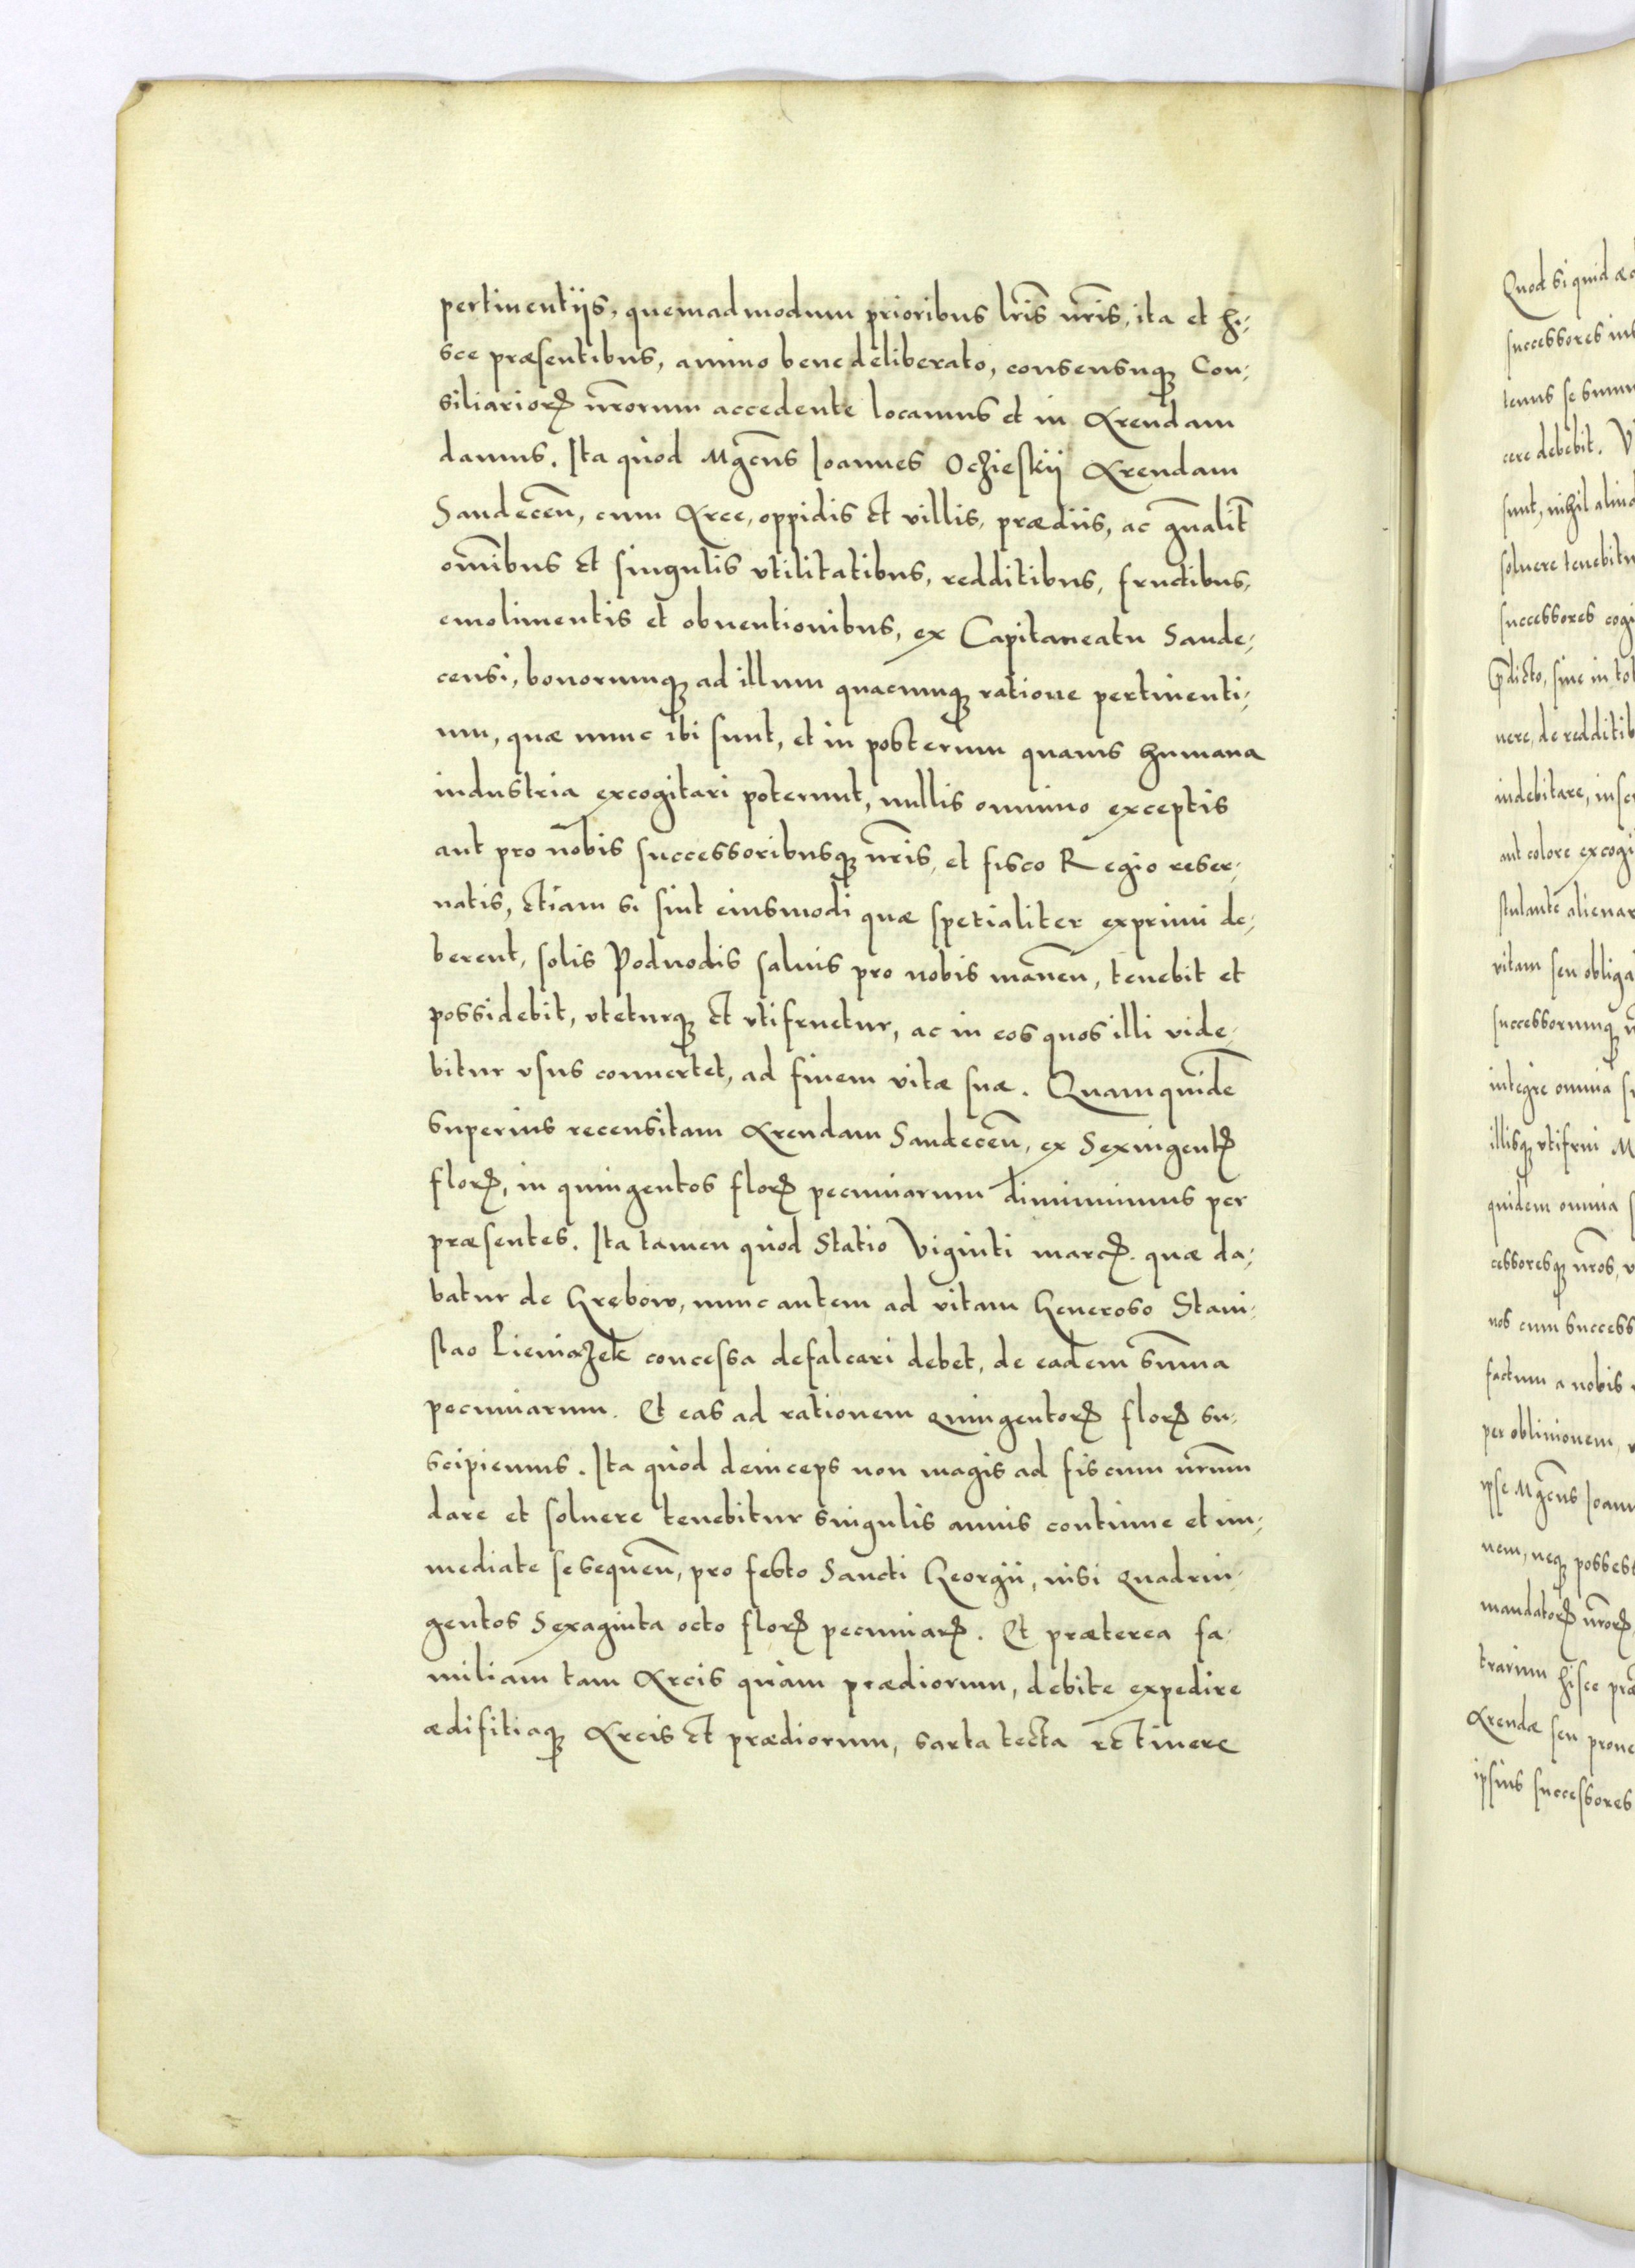 pertinentijs, quemadmodum prioribus lr̃is nr̃is, ita et hi,
sce præsentibus, animo bene deliberato, consensuqȝ Con,
siliarioꝝ nr̃orum accedente locamus et in Arendam
damus. Ita quòd Mgc̃us Ioannes Oczieskij Arendam
Sandecen̄, cum Arce, oppidis et villis, prædiis, ac gñalit̃
om̃ibus et singulis vtilitatibus, redditibus, fructibus,
emolimentis et obuentionibus, ex Capitaneatu Sande,
censi, bonorumqȝ ad illum quacumqȝ ratione pertinenti,
um, quæ nunc ibi sunt, et in posterum quauis humana
industria excogitari poterunt, nullis omnino exceptis
aut pro nobis successoribusqȝ nr̃is, et fisco Regio reser,
uatis, etiam si sint eiusmodi quæ spetialiter exprimi de,
berent, solis Poduodis saluis pro nobis manen̄, tenebit et
possidebit, vteturqȝ et vtifruetur, ac in eos quos illi vide,
bitur vsus conuertet, ad finem vitæ suæ. Quamquidẽ
superius recensitam Arendam Sandecen̄, ex Sexingentꝭ
floꝝ, in quingentos floꝝ pecuniarum diminuimus per
præsentes. Ita tamen quòd Statio Viginti marcꝝ. quæ da,
batur de Grębow, nunc autem ad vitam Generoso Stani,
slao Pieniążek concessa defalcari debet, de eadem sum̃a
pecuniarum. Et eas ad rationem quingentoꝝ floꝝ su,
scipiemus. Ita quòd deinceps non magis ad fiscum nr̃um
dare et soluere tenebitur singulis annis continue et im,
mediate se sequen̄, pro festo Sancti Georgii, nisi quadrin,
gentos Sexaginta octo floꝝ pecuniaꝝ. Et præterea fa,
miliam tam Arcis quàm prædiorum, debite expedire
ædifitiaqȝ Arcis et prædiorum, sarta tecta retinere
Quod si quid
successores
tenus se
cere debebit.
sunt, nihil
soluere
successores
p̄dicto, siue in
uere, de
indebitare,
aut colore
vitam seu
successorumqȝ
integre omnia
illisqȝ vtifrui
quidem omnia
cessoresqȝ nr̃os,
nos cum
factum a nobis
per obliuionem,
ipse Mgc̃us
nem, neqȝ
mandatoꝝ nr̃oꝝ
trarium hisce
Arendæ seu
ipsius successores